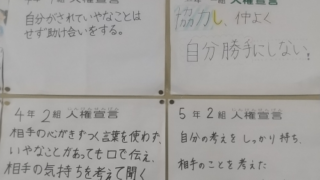 人権宣言
自分がされていやなことは
せず助け合いをする。
人権宣言
協力し、仲よく
自分勝手にしない!
4年2組 人権宣言
相手の心がきずつく言葉を使わず、
いやなことがあっても口で伝え、
相手の気持ちを考えて聞く
5年2組 人権宣言
自分の考えをしっかり持ち、
相手のことを考えた